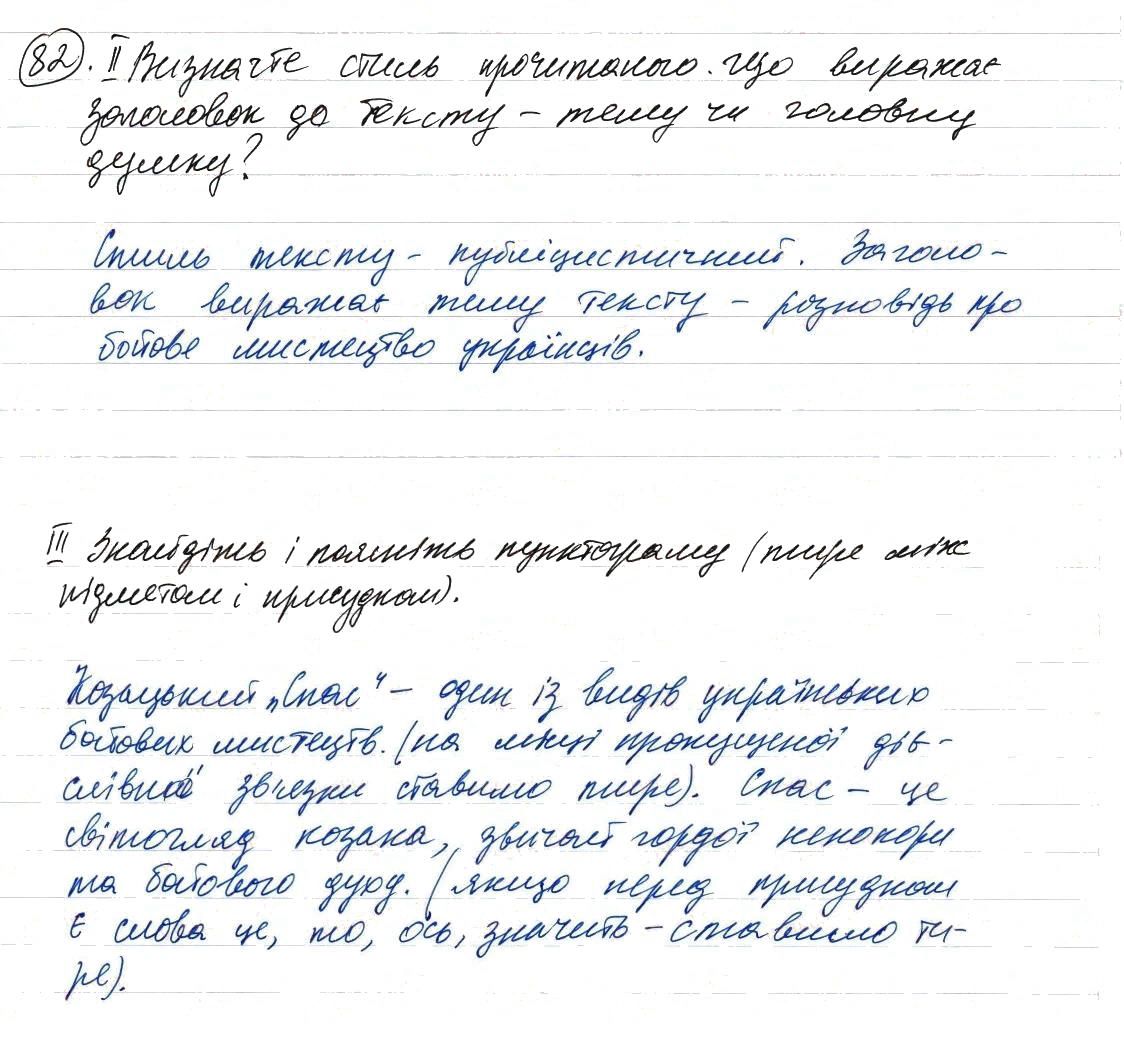 82. II Визначте стиль прочитаного. Що виражає
заголовок до тексту – тему чи головну
думку?
Стиль тексту – публіцистичний. Заголо-
вок виражає тему тексту – розповідь про
бойове мистецтво українців.
III Знайдіть і поясніть пунктограму (тире між
підметом і присудком).
Козацький „Спас" – один із видів українських
бойових мистецтв. (на місці пропущеної діє-
слівної зв'язки ставимо тире). Спас – це
світогляд козака, звичаї гордої непокори
та бойового духу. (якщо перед присудком
є слова це, то, ось, значить – ставимо ти-
ре).